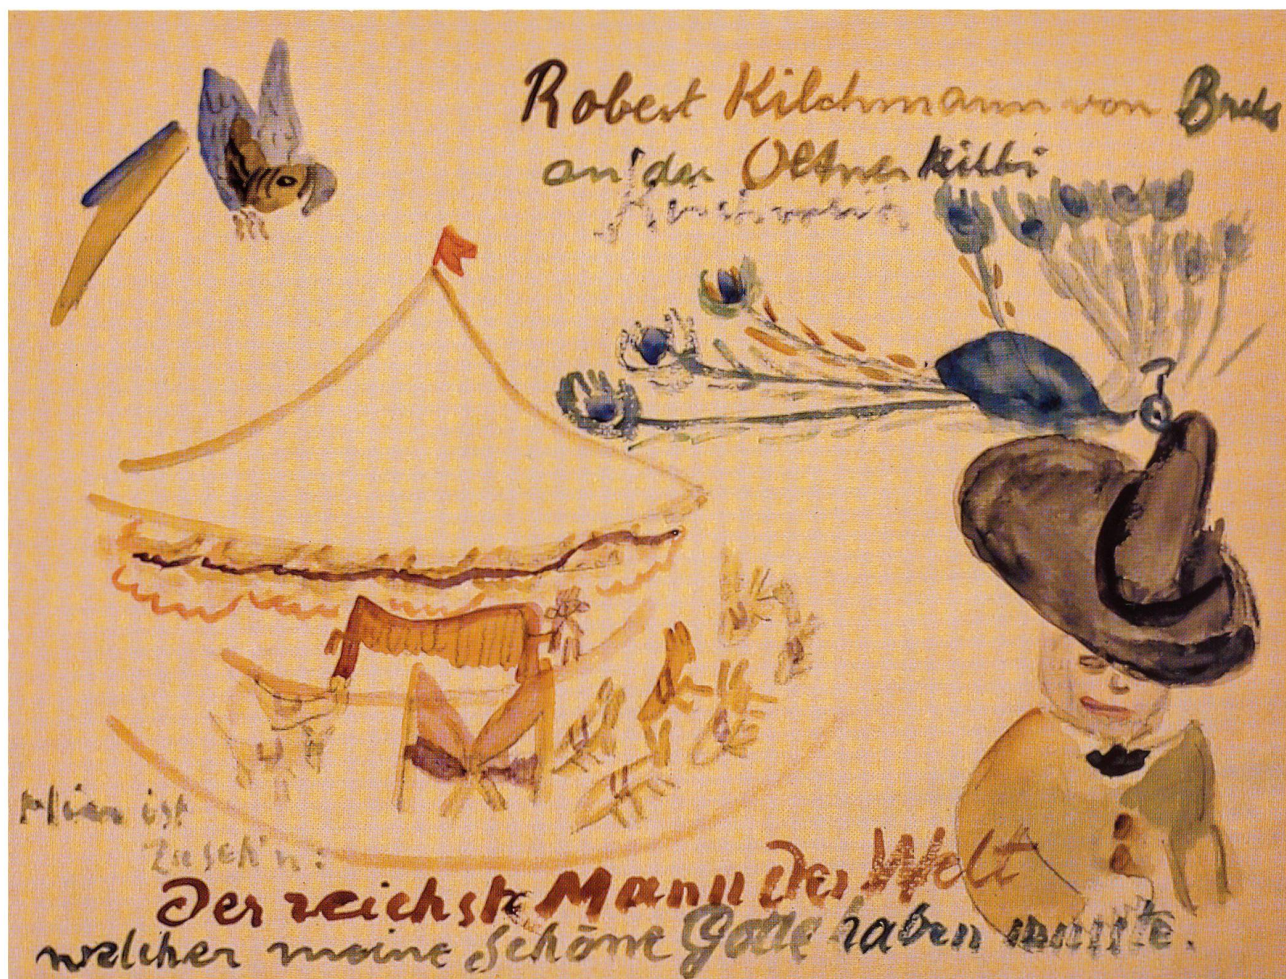 Robert Kilchmann von
an der Oltner Kilbi
Hier ist
zu seh'n:
Der reichste Mann der Welt
welcher meine schöne Gotte haben musste.